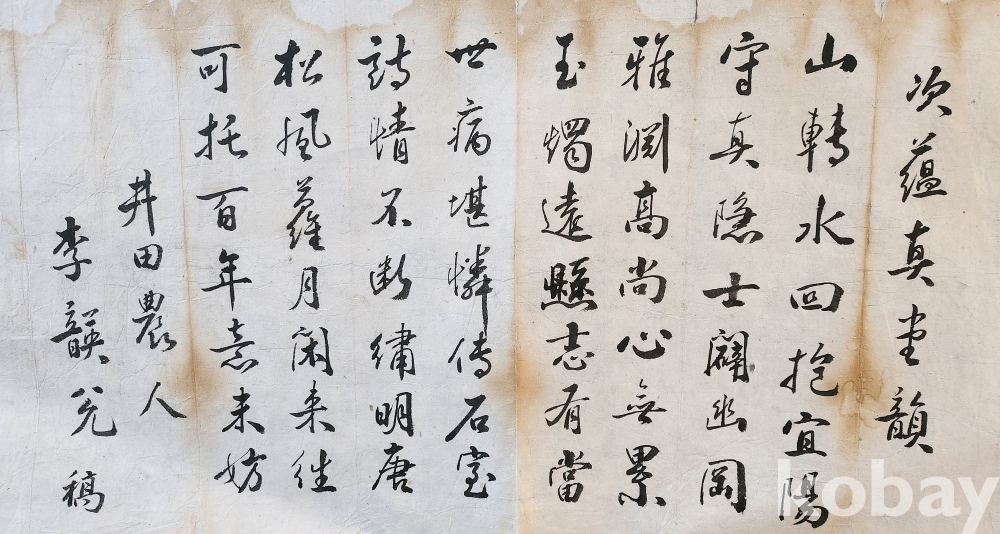 次蘊真堂韻
山轉水回抱宜陽
守真隱士闢幽岡
雅淵高尚心無累
玉燭遠懸志有當
世病堪憐傳石室
詩情不断繡明唐
松風蘿月閑来往
可托百年意未妨
井田農人
李韺兌稿
kobay